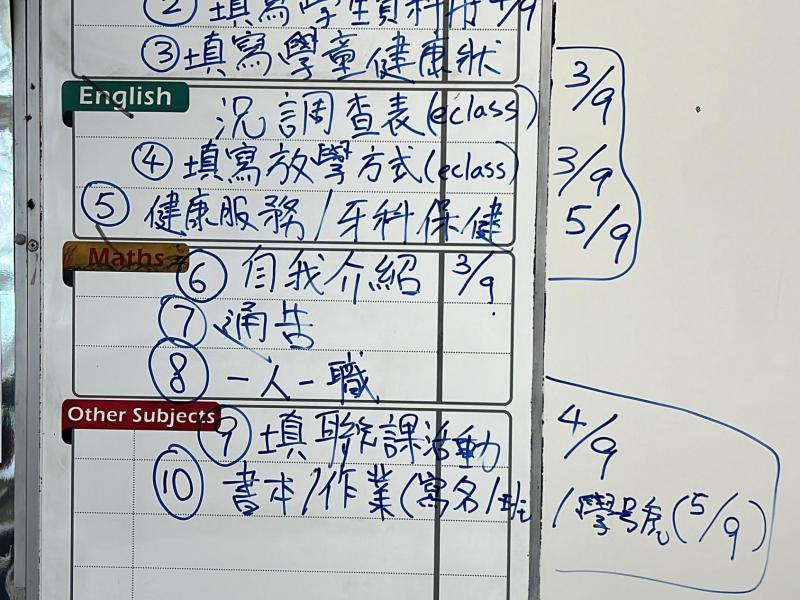 ② 填寫學生資料冊 4/9
③ 填寫學童健康狀
English
況調查表(eclass) 3/9
④ 填寫放學方式(eclass) 3/9
⑤ 健康服務/牙科保健 5/9
Maths
⑥ 自我介紹 3/9
⑦ 通告
⑧ 一人一職
Other Subjects
⑨ 填聯課活動 4/9
⑩ 書本/作業(寫名/班/學号虎(5/9)